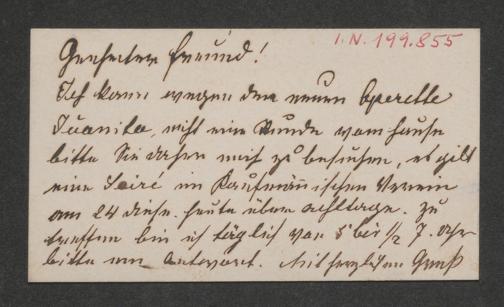 I.N. 199.855
Geehrter Freund!
Ich kann wegen der neuen Operette
Juanita, nicht eine Stunde vom Hause
bitte Sie daher mich zu besuchen, es gilt
eine Soiré im Kaufmännischen Verein
am 24 dieses. heute über achttage. Zu
treffen bin ich täglich von 5 bis 1/2 7. Uhr
bitte um Antwort. Mit herzlichen Gruß